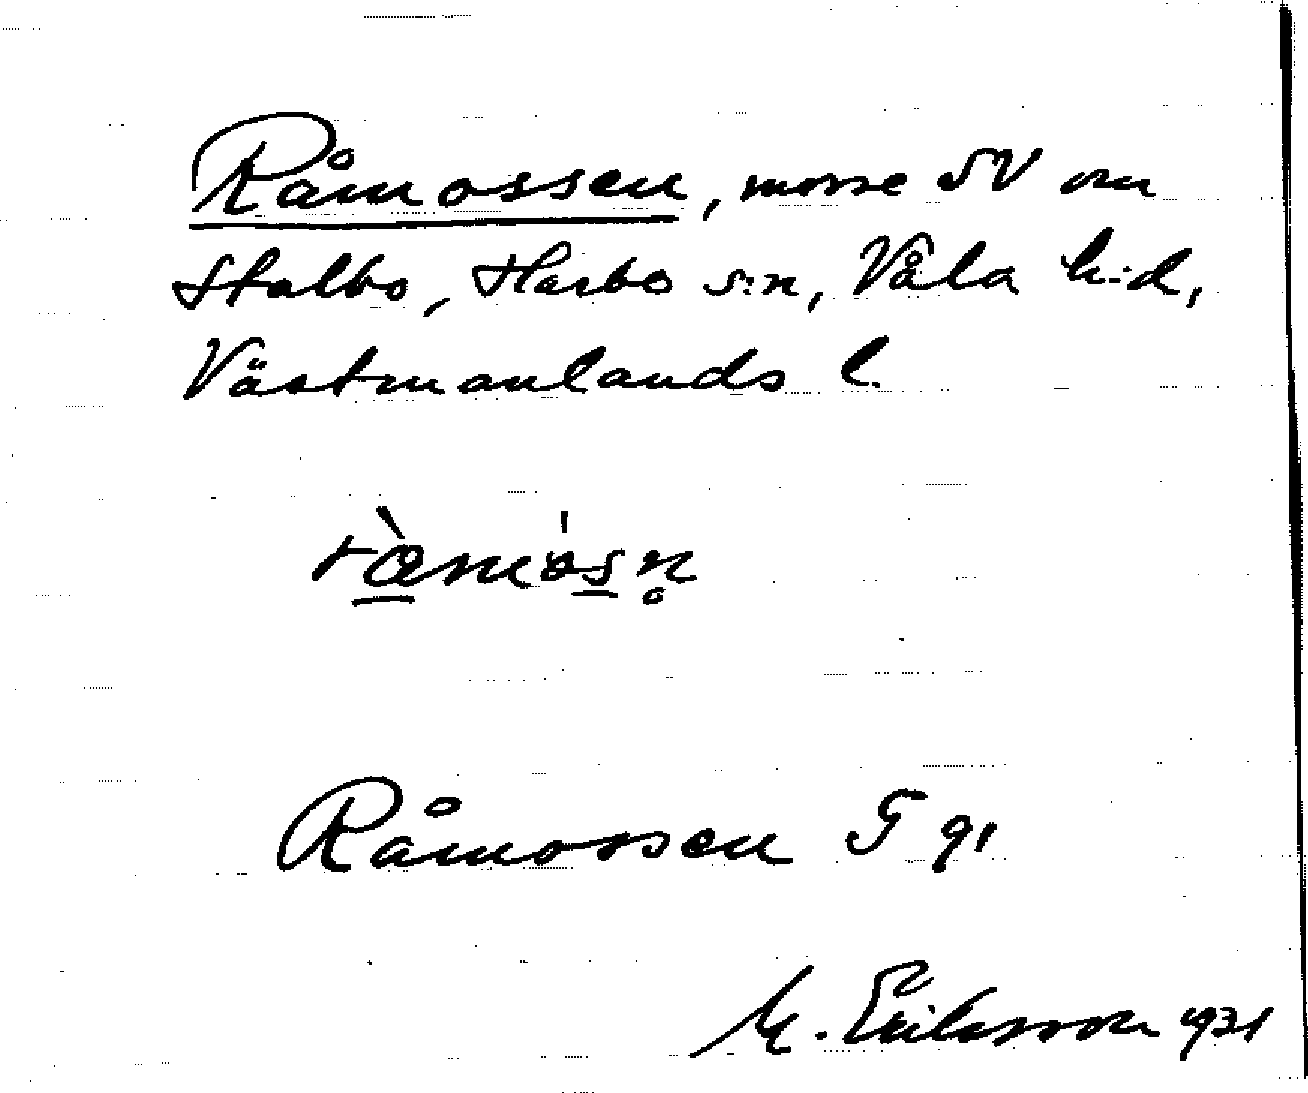 Råmossen, mosse SV om
Stalbo, Harbo s:n, Våla h:d,
Västmanlands l.
Råmossen G 91
M. Eriksson 1931